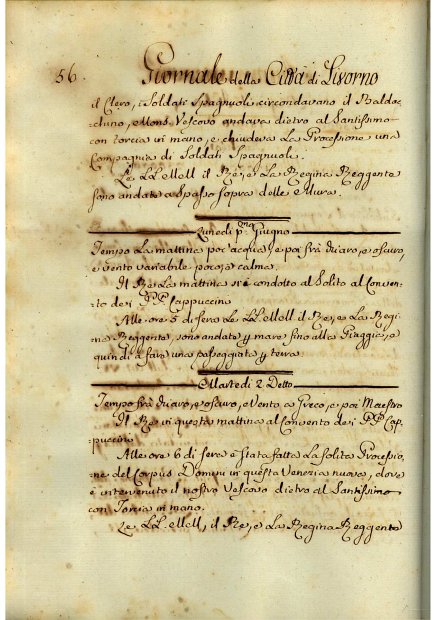 56. Giornale della Città di Livorno
il Clero, i Soldati Spagnuoli circondavano il Baldac=
chino, Mons. Vescovo andava dietro al Santissimo
con torcia in mano, e chiudeva La Processione una
Compagnia di Soldati Spagnuoli.
Le LL. MM. il Re, e La Regina Reggente
sono andate a Spasso sopra delle Mura.
Lunedì pmo Giugno
Tempo La mattina poc'acqua, e poi frà chiaro, e oscuro,
e vento variabile poco, e calma
Il Re La mattina si è condotto al Solito al Conven=
to dei PP. Cappuccini
Alle ore 5 di sera Le LL. MM. il Re, e La Regi=
na Reggente, sono andate p mare fino alla Spiaggia, e
quindi a fare una passeggiata p terra
Martedì 2 Detto
Tempo frà chiaro, e oscuro, e Vento a Greco, e poi Maestro
Il Re in questa mattina al Convento dei PP. Cap=
puccini
Alle ore 6 di sera è stata fatta La solita Processio=
ne del Corpus Domini in questa Venezia nuova, dove
è intervenuto il nostro Vescovo dietro al Santissimo
con Torcia in mano.
Le LL. MM., il Re, e La Regina Reggente